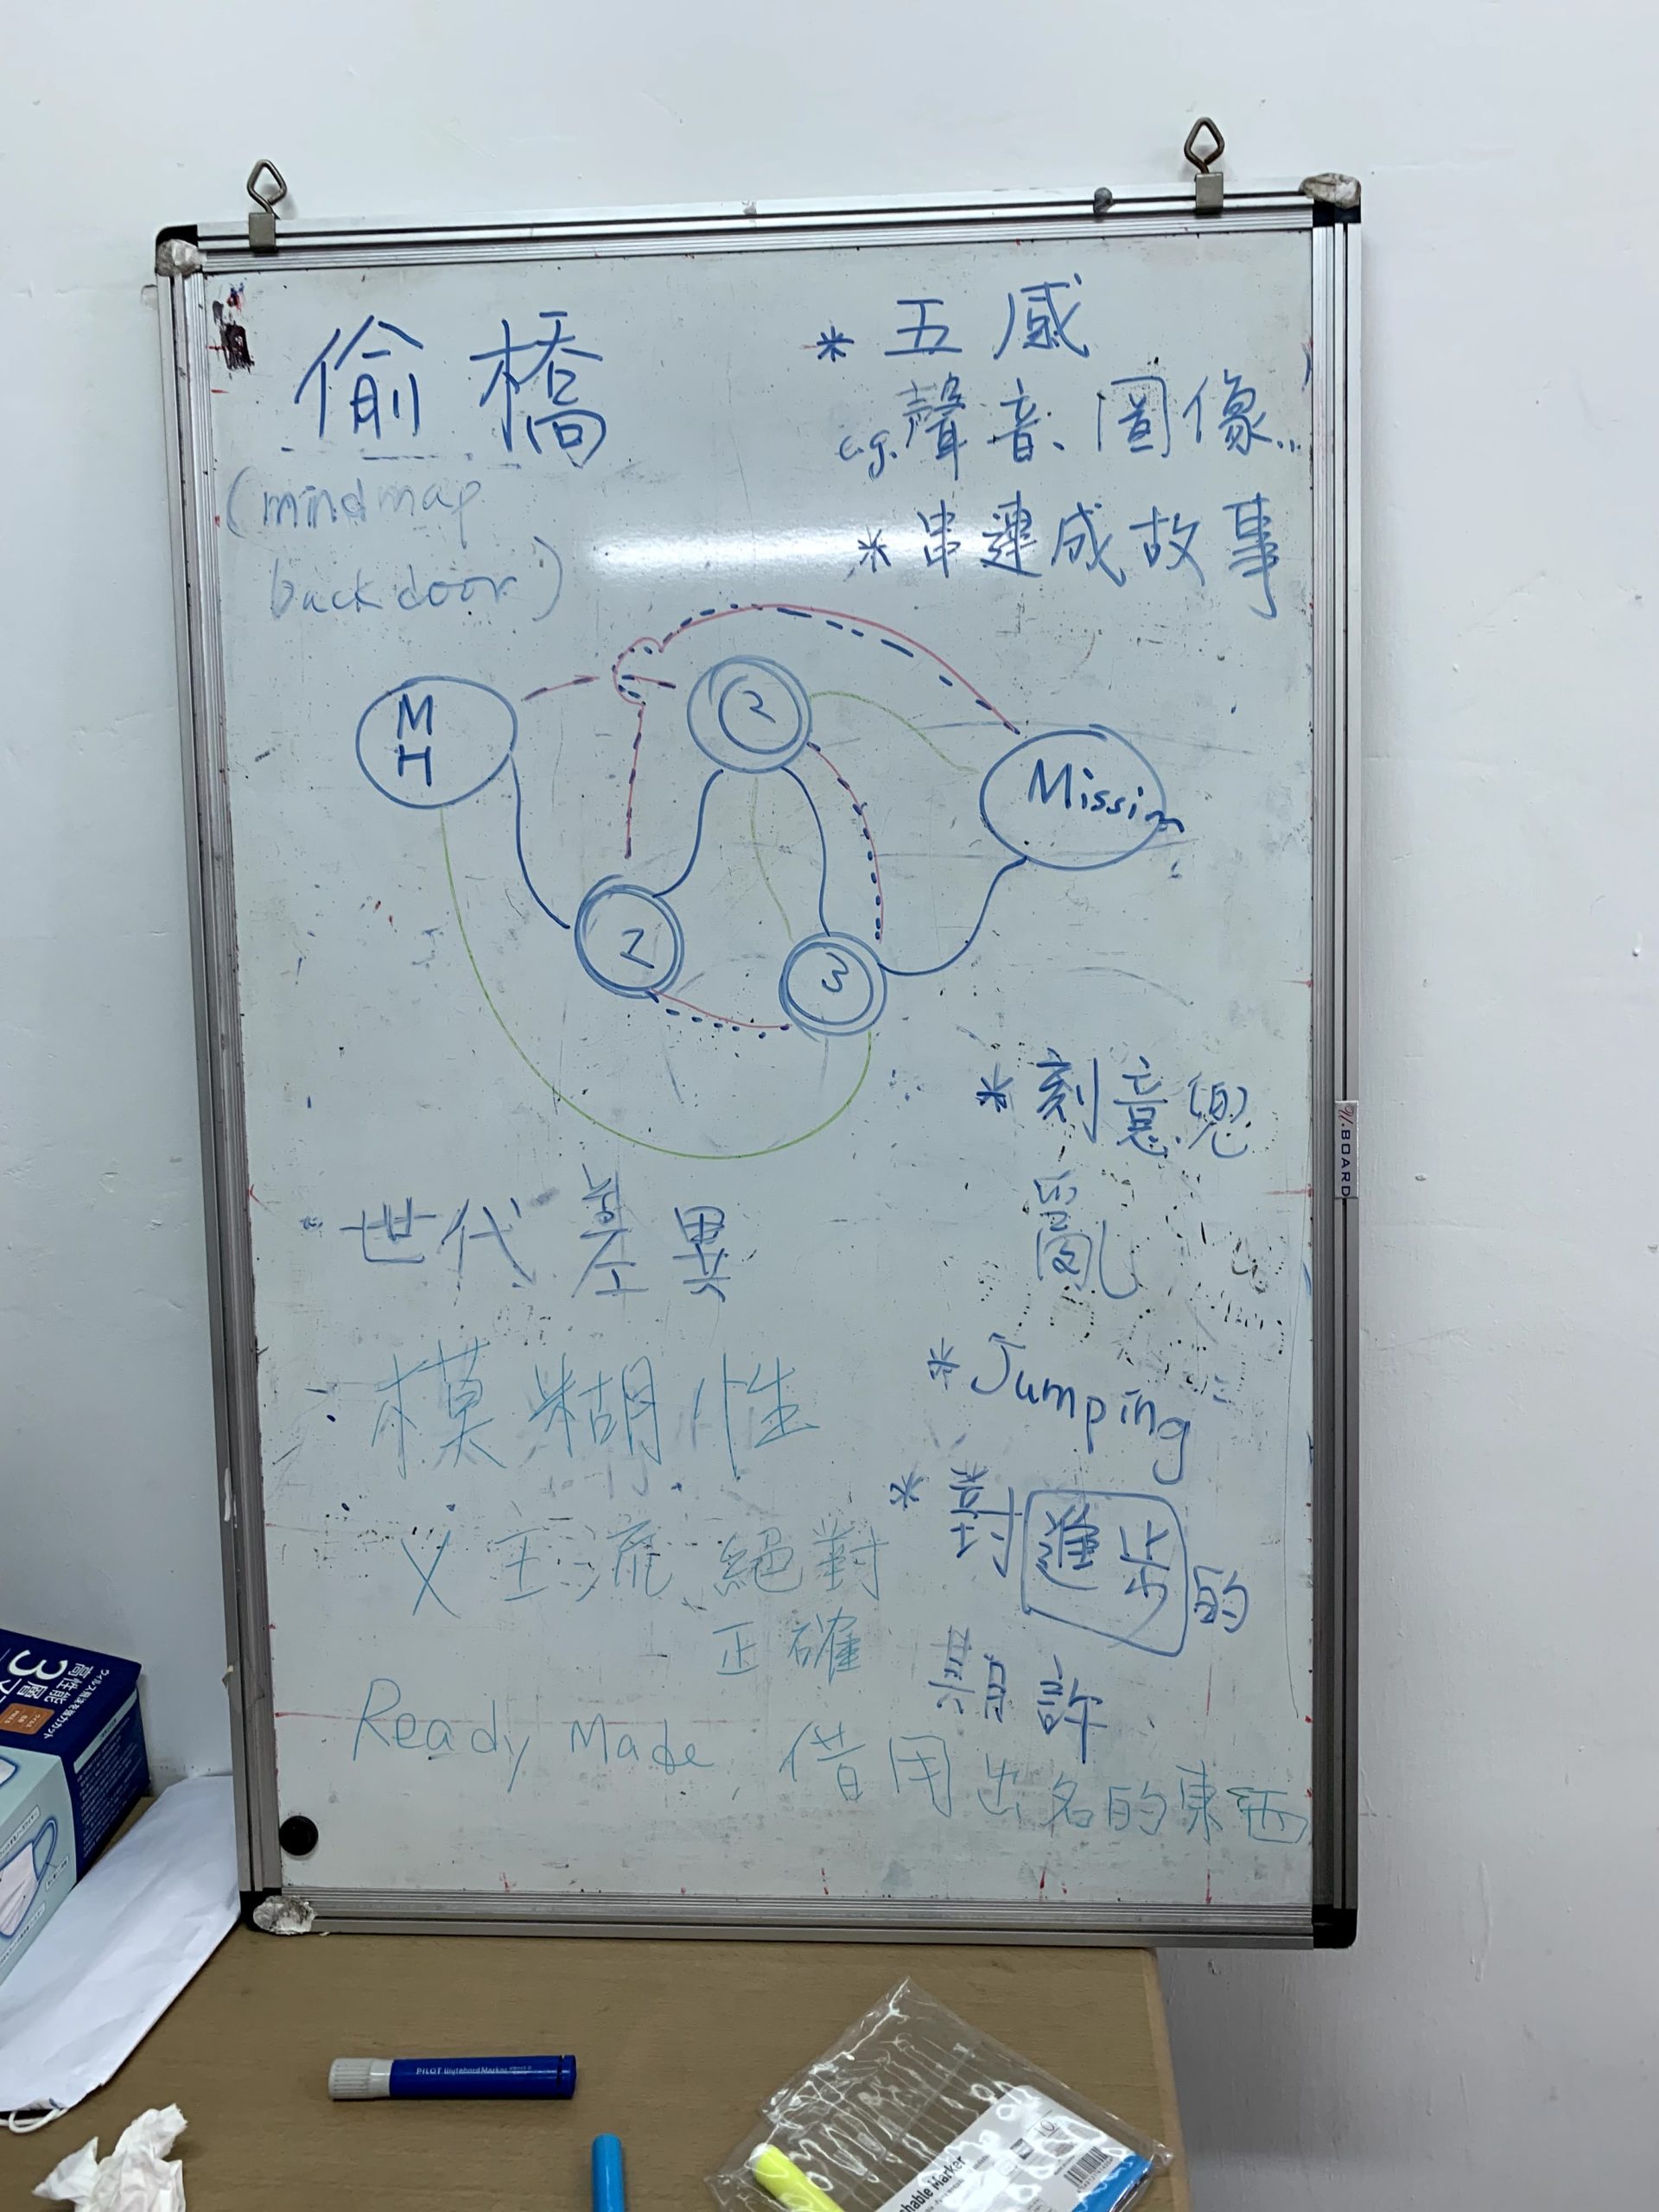 偷橋
(mindmap
backdoor)
* 五感
e.g. 聲音、圖像...
* 串連成故事
M
H
2
Mission
2
3
* 刻意兜
亂
* 世代差異
* Jumping
模糊性
* 對進步的
X 主流 絕對
正確
期許
Ready Made 借用出名的東西
W.BOARD
高性能
3層
PILOT WhyteBord Marker